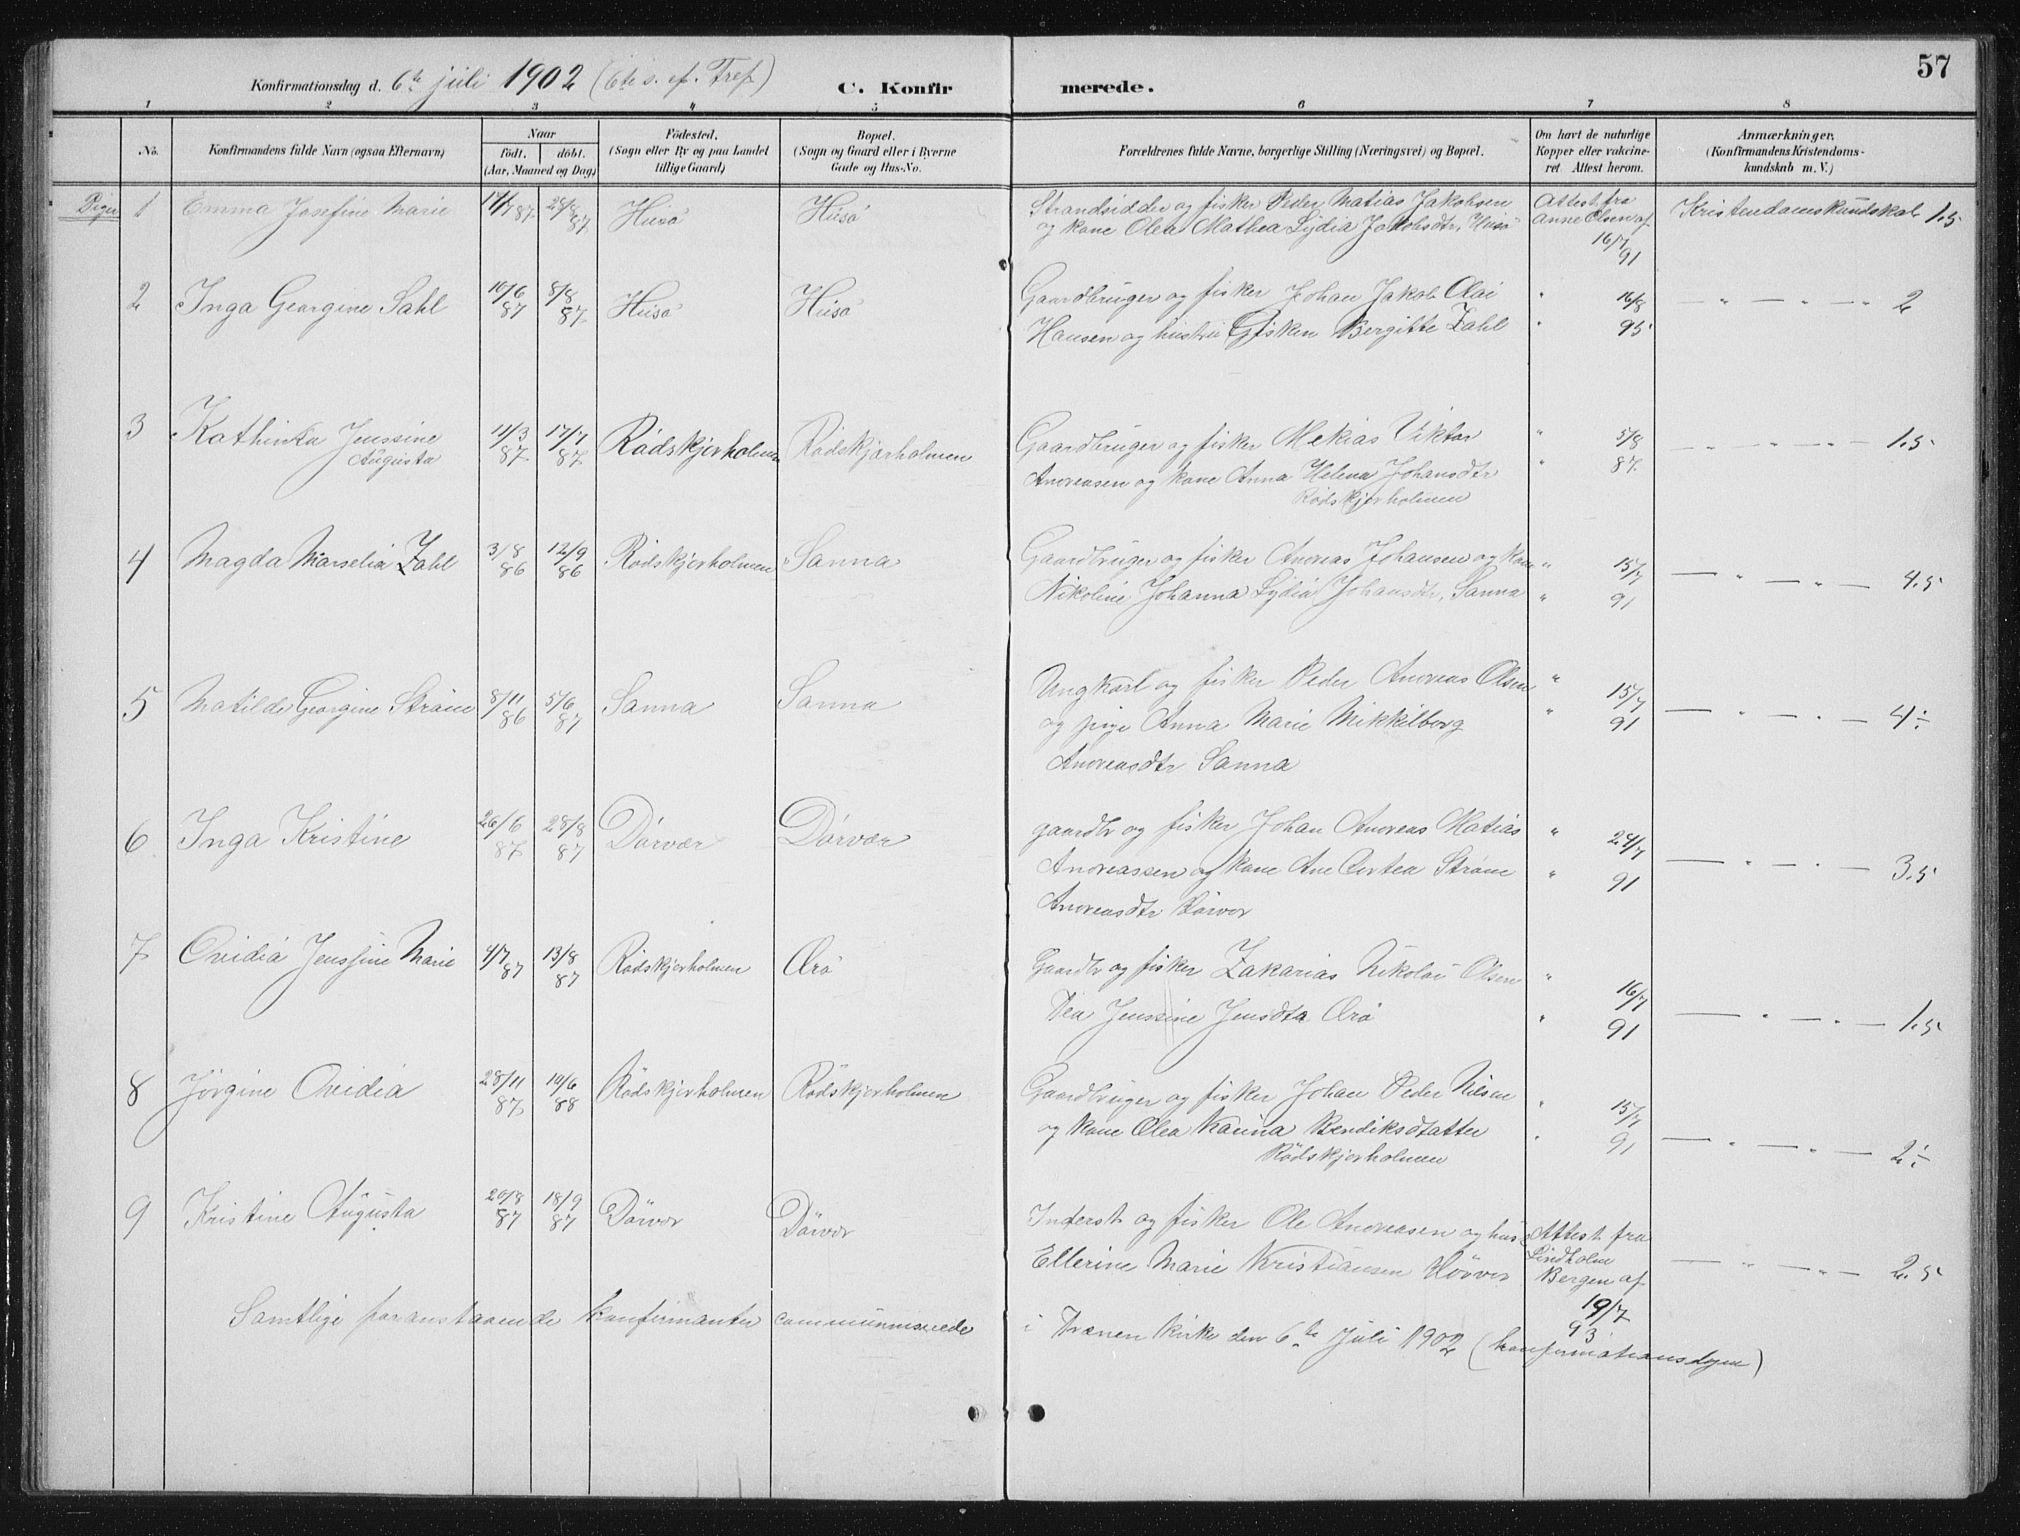 57
Konfirmationsdag d. 6te juli 1902 (6te s. ef. Tref.) C. Konfirmerede.
1 2 3 4 5 6 7 8
No.
Konfirmandens fulde Navn (ogsaa Efternavn)
Naar
födt. döbt.
(Aar, Maaned og Dag)
Födested.
(Sogn eller By og paa Landet
tillige Gaard)
Bopæl.
(Sogn og Gaard eller i Byerne
Gade og Hus-No.
Forældrenes fulde Navne, borgerlige Stilling (Næringsvei) og Bopæl.
Om havt de naturlige
Kopper eller vakcine-
ret Attest herom.
Anmærkninger.
(Konfirmandens Kristendoms-
kundskab m. V.)
Piger 1 Emma Josefine Marie 17/7 87 28/8 87 Husö Husö Strandsidder og fisker Peder Matias Jakobsen Attest fra Kristendomskundskab 1.5
og kone Olea Mathea Lydia Jakobsdtr, Husö Anne Olsen af
16/7
91
2 Inga Georgine Sahl 10/6 87 8/8 87 Husö Husö Gaardbruger og fisker Johan Jakob Olai " 16/8 — " — " — " 2
Hansen og hustru Gjisken Bergitte Zahl " 95
3 Kathinka Jenssine 11/3 87 17/7 87 Rödskjerholmen Rödskjærholmen Gaardbruger og fisker Mekias Viktor " 5/8 — " — " — " — 1.5
Augusta
Andreasen og kone Anna Helena Johansdtr " 87
Rödskjerholmen
4 Magda Marselia Zahl 3/8 86 12/9 86 Rödskjerholmen Sanna Gaardbruger og fisker Andreas Johansen og kone " 15/7 — " — " — 4.5
Nikoline Johanna Lydia Johansdtr, Sanna " 91
5 Matilde Georgine Ström 8/11 86 5/6 87 Sanna Sanna Ungkarl og fisker Peder Andreas Olsen " 15/7
og pige Anna Marie Mikkilborg " 91 — " — " — 4 ÷
Andreasdtr Sanna
6 Inga Kristine 26/6 87 28/8 87 Dörvær Dörvær gaardbr og fisker Johan Andreas Matias " 24/7
Andreassen og kone Ane Ström " 91 — " — " — 3.5
Andreasdtr Dörvær
7 Ovidia Jenssine Marie 4/7 87 13/8 87 Rödskjerholmen Ærö Gaardbr og fisker Zakarias Nikolai Olsen " 16/7
Dea Jenssine Jensdtr Ærö " 91 — " — " — 1.5
8 Jörgine Ovidia 28/11 87 10/6 88 Rödskjerholmen Rödskjerholmen Gaardbruger og fisker Johan Peder Nilsen " 15/7
og kone Olea Karina Bendiksdtatter " 91 — " — " — 2 ÷
Rödskjerholmen
9 Kristine Augusta 20/8 87 18/9 87 Dörvær Dörvær Inderst og fisker Ole Andreasen og hus Attest fra
Ellerine Marie Kristiansen Dörvær Lindholm
Bergen af — " — " — 2.5
19/7
93
Samtlige foranstaaende konfirmanter communicerede i Trænen kirke den 6te Juli 1902 (konfirmationsdagen)